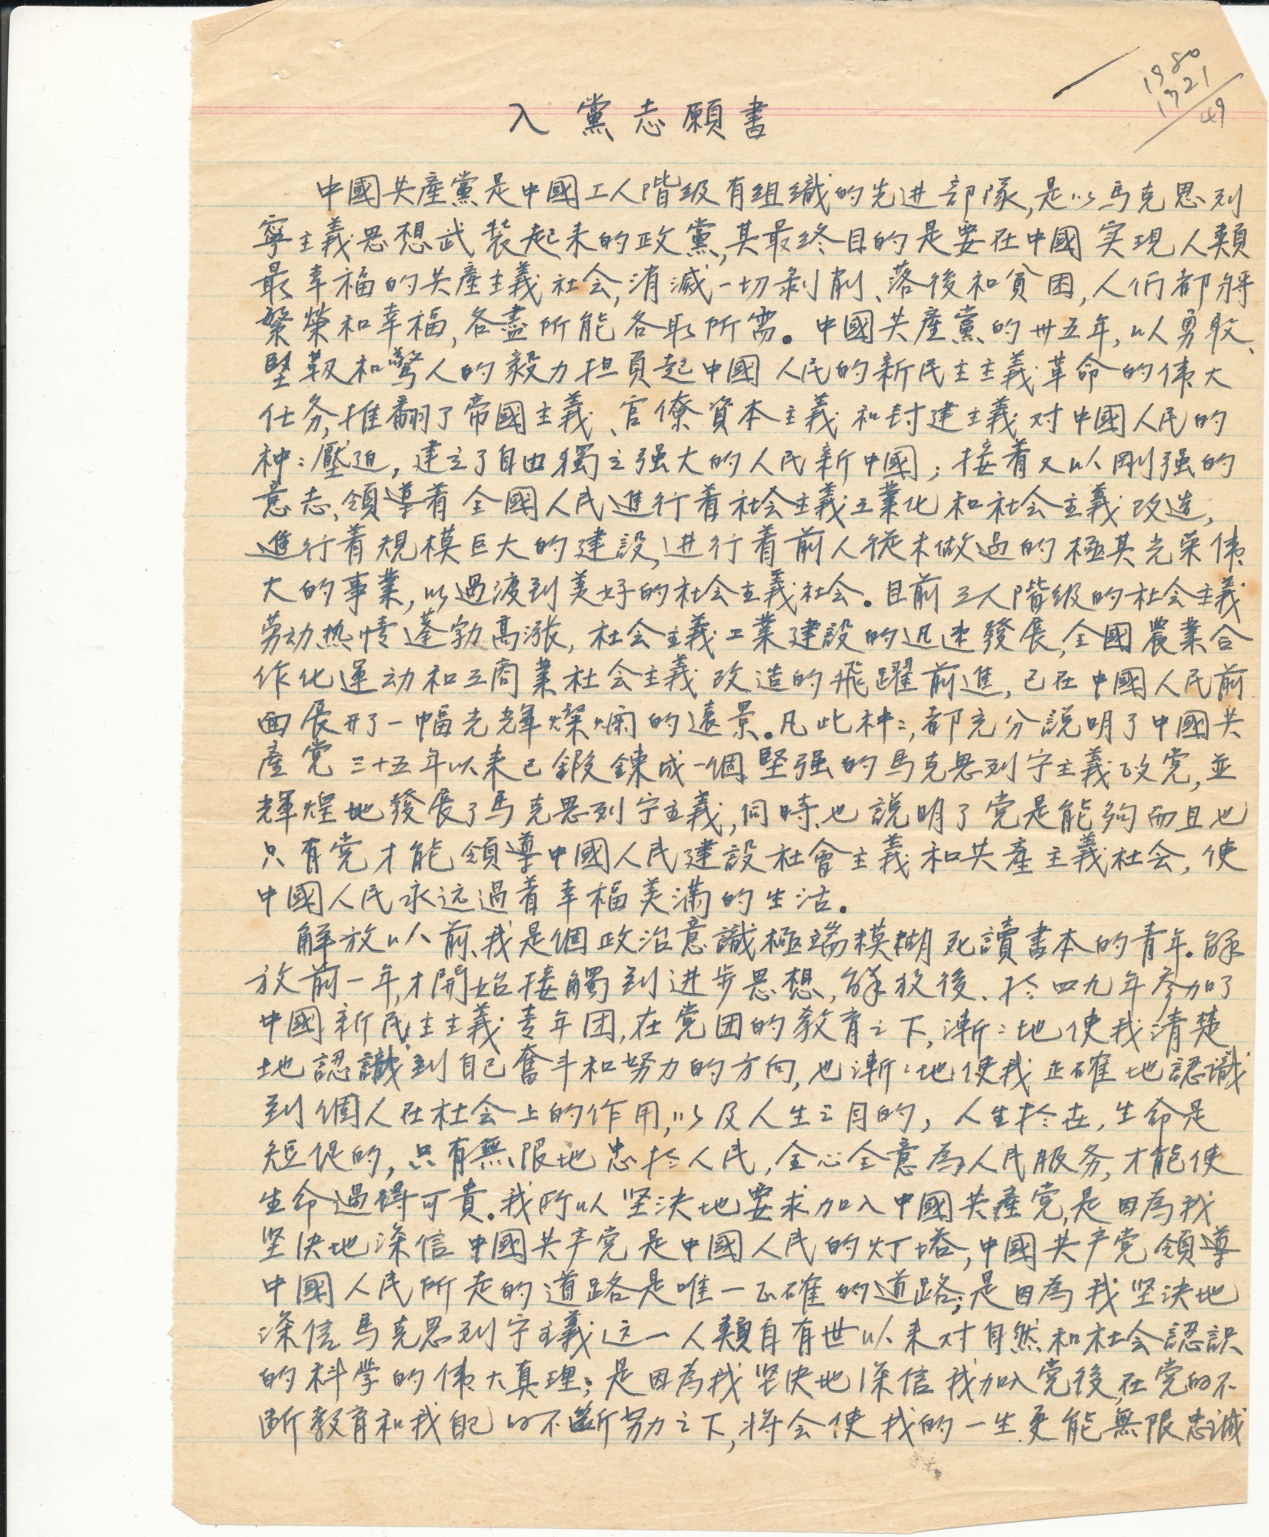 1980
1921
49
入黨志願書
中國共產黨是中國工人階级有组織的先进部隊,是以馬克思列
寧主義思想武裝起來的政黨,其最终目的是要在中國实現人類
最幸福的共產主義社会,消滅一切剥削、落後和貧困,人们都将
繁榮和幸福,各盡所能各取所需。中國共產黨的卅五年,以勇敢、
堅靱和驚人的毅力担負起中國人民的新民主主義革命的偉大
任务,推翻了帝國主義、官僚資本主義和封建主義对中國人民的
种:壓迫,建立了自由獨立强大的人民新中國;接着又以剛强的
意志、領導着全國人民進行着社会主義工業化和社会主義改造,
進行着規模巨大的建設,进行着前人從未做過的極其光荣偉
大的事業,以過渡到美好的社会主義社会。目前工人階级的社会主義
劳动热情蓬勃高漲,社会主義工業建設的迅速發展,全國農業合
作化運动和工商業社会主義改造的飛躍前進,已在中國人民前
面展开了一幅光輝燦爛的遠景。凡此种:,都充分說明了中國共
產党三十五年以来已鍛鍊成一個堅强的馬克思列宁主義政党,並
輝煌地發展了馬克思列宁主義,同時也說明了党是能夠而且也
只有党才能領導中國人民建設社會主義和共產主義社会,使
中國人民永远過着幸福美滿的生活。
解放以前,我是個政治意識極端模糊死讀書本的青年。解
放前一年,才開始接觸到进步思想,解放後、於四九年参加了
中國新民主主義青年团,在党团的教育之下,漸:地使我清楚
地認識到自己奮斗和努力的方向,也漸:地使我正確地認識
到個人在社会上的作用,以及人生之目的,人生於在,生命是
短促的,只有無限地忠於人民,全心全意為人民服务,才能使
生命過得可貴。我所以坚决地要求加入中國共產党,是因為我
坚决地深信中國共产党是中國人民的灯塔,中國共产党領導
中國人民所走的道路是唯一正確的道路;是因為我坚决地
深信馬克思列宁主義这一人類自有世以来对自然和社会認识
的科学的偉大真理;是因為我坚决地深信我加入党後,在党的不
断教育和我自己的不断努力之下,将会使我的一生更能無限忠誠